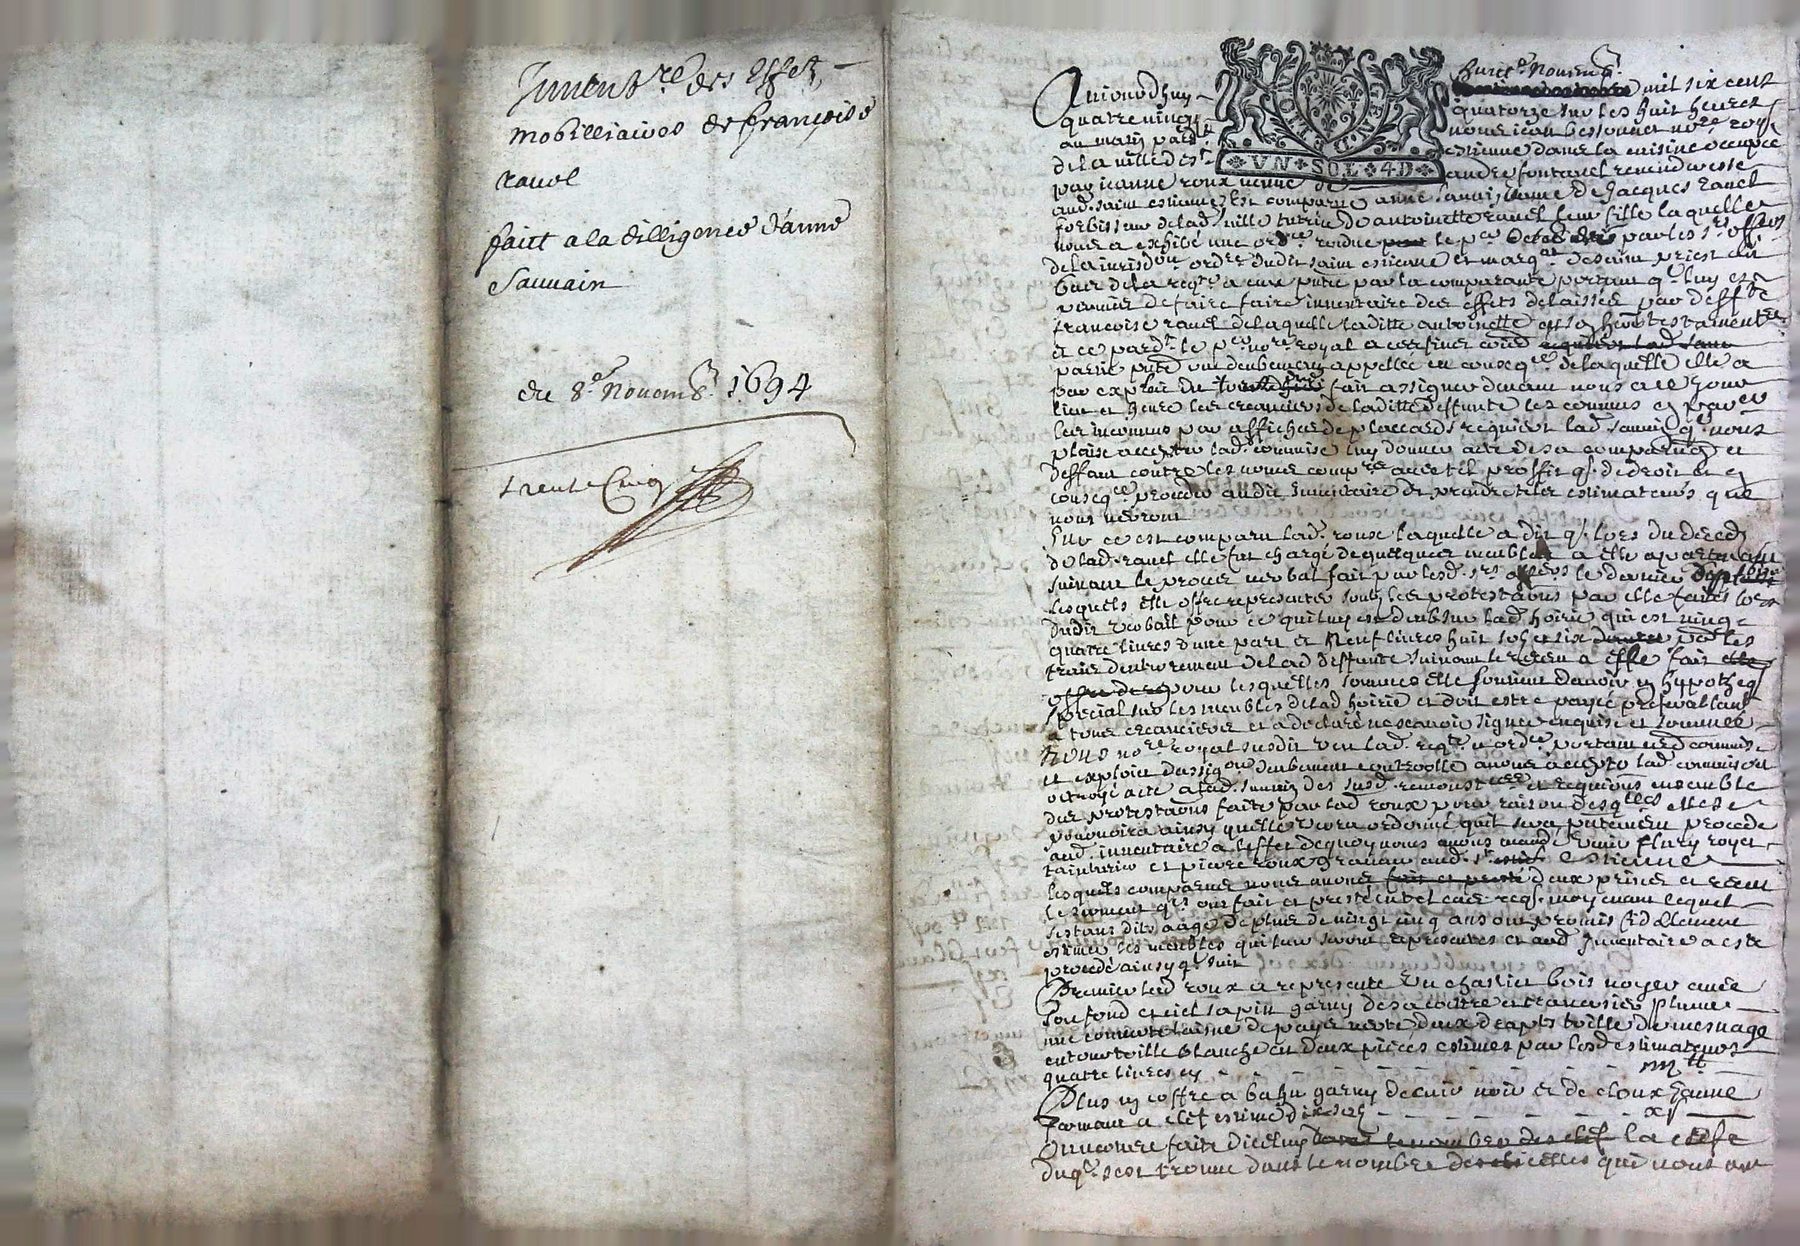 Inventre des Effetz
mobilliaires de françoise
ravel
faict a la dilligence d'anne
Sauvain
du 8e Novemb. 1694
trente Cinq
GENE
VN SOL 4D
Aujourdhuy huict Novemb. mil six cent
quatre vingt quatorze sur les huit heures
au matin par nous jean bessonnet nore royl
de la ville de st estienne dans la cuisine occupée
par jeanne roux veufve de andre fontanel revenderesse
aud. saint estienne est comparue anne sauvain veufve de Jacques ravel
forbisseur de lad. ville tutrice de antoinette ravel leur fille laquelle
nous a exhibé une ordce rendue le pr Octob. par les srs offrs
de la jurisdon ordre dudit saint estienne et marqat de saint priest au
bas de la reqte a eux pntée par la comparante portant q. luy est
permis de faire faire inventaire des effets delaissés par deffte
francoise ravel de laquelle laditte antoinette est son here testamentre
et ce pardt le pr nore royal a ces fins comis
partie pnte ou deubement appellée en conseqce de laquelle elle a
par exploit du fait assigner devant nous a ce jour
lieu et heure les creanciers de laditte deffunte les connus et pnt
les inconnus par affiches de placcards requiert lad. sauvain q. nous
plaise accepter lad. commise luy donner acte de sa comparuon et
deffaut contre les nones compts avec tel proffit q. de droit et en
conseqce proceder audit inventaire et prendre telz estimateurs que
nous verrons
Sur ce est comparu lad. roux laquelle a dit q. lors du deced
de lad. ravel elle fut chargé de quelques meubles a elle apartenant
suivant le proces verbal fait par lesd. srs offrs le dernier
lesquels elle offre representer soubs les protestaons par elle faites lors
dudit verbail pour ce quil luy est deub sur lad. hoirie qui est vingt
quatre livres dune part et Neuf livres huit solz et six pour les
frais denterrement de lad. deffunte suivant le receu a elle fait
pour lesquelles sommes elle soutient davoir un hypotheq
special sur les meubles de lad hoirie et doit estre payée preferablemt
a tous creanciers et a declaré ne scavoir signer enquise et sommée
Nous nore royal susdit veu lad. reqte et ordce portant nre commise
et exploit dassigon deubement controollé avons accepté lad. commison
octroyé acte a lad. sauvain des susd. remonstces et requions ensemble
des protestaons faite par lad roux pour raison desqlles elle se
pourvoira ainsy quelle verra ordonné quil sera pntement procede
aud. inventaire a leffet de quoy nous avons mandé venir fleury royet
tainturier et pierre roux graveur aud. st estienne
lesquels comparus nous avons deux prins et receu
le serment qls ont fait et presté en tel cas req. moyenant lequel
sestans dits aagé de plus de vingt cinq ans ont promis fidellement
estimer les meubles qui leur seront representés et aud. Inventaire a esté
procedé ainsy q. suit
Premier lad. roux a representé un chaslict bois noyer avec
son fond et ciel sapin garny de sa coettre et traversier plume
une couverte laisne de pays verte deux draps toille de mesnage
entour toille blanche en deux pieces estimés par lesd. estimateurs
quatre livres cy - - - - - iiij ll
Plus un coffre a bahu garny de cuir noir et de cloux jaune
fermant a clef estimé dix solz - - - - x s
Ouverture faite dicelluy la clefe
duql. sest trouvé dans le nombre de celles qui nous ont